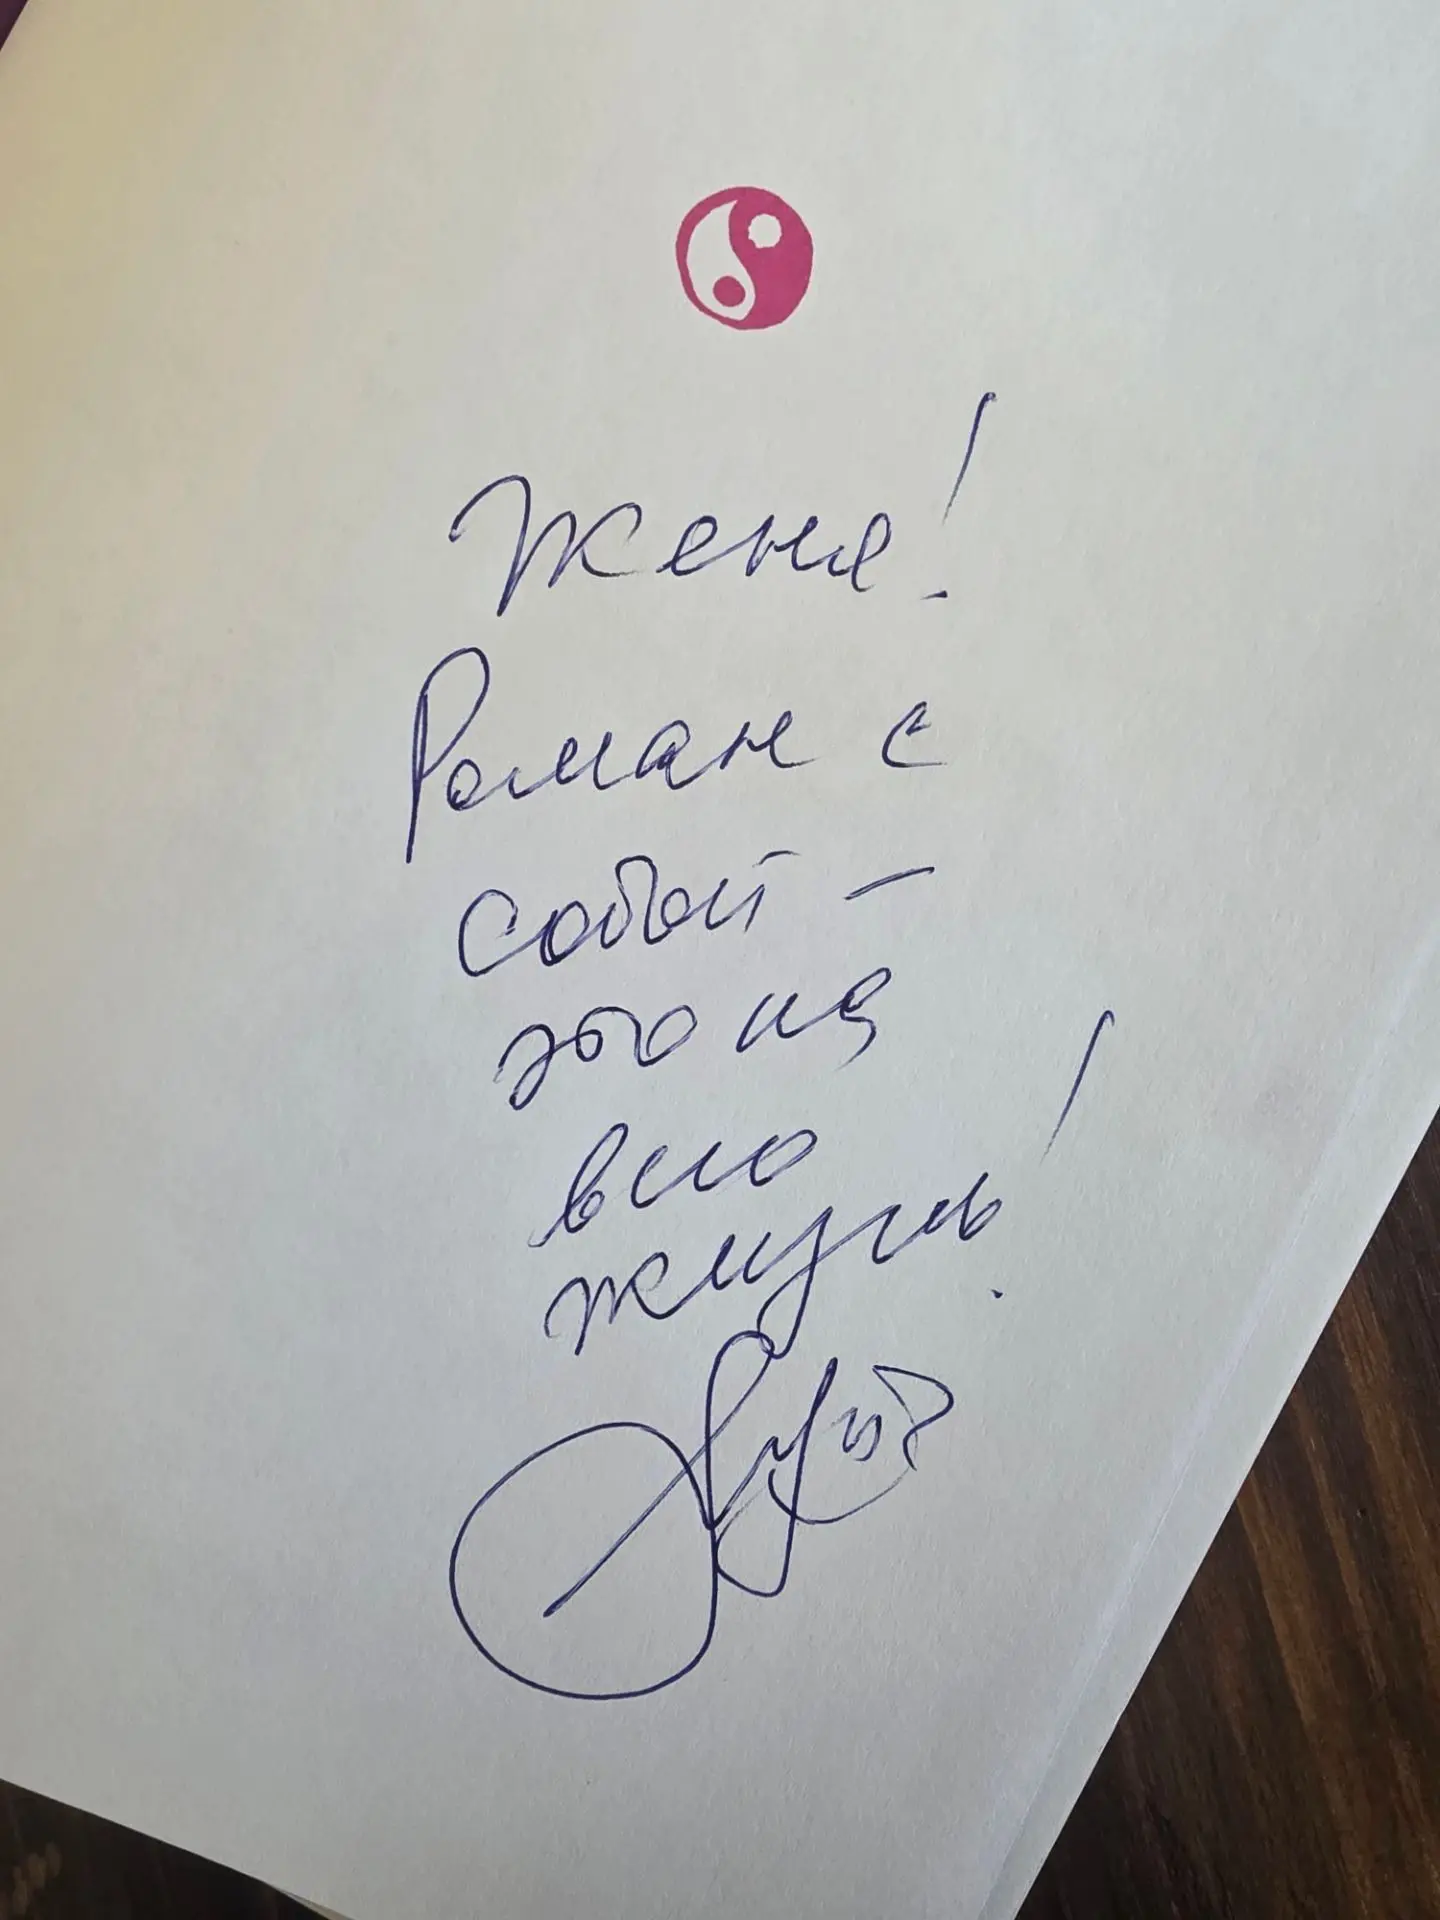 Женя!
Роман с
собой –
это на
всю
жизнь!